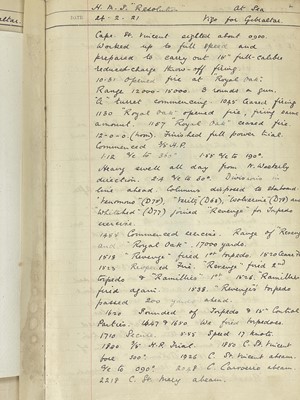 H.M.S. "Resolution" At Sea
DATE 24-2-21 Vigo for Gibraltar.
Cape St. Vincent sighted about 0900.
Worked up to full speed and
prepared to carry out 15" full-calibre
reduced-charge throw-off firing
1031 Opened fire at "Royal Oak".
Range 12000-15000. 8 rounds a gun.
"A" turret commencing 1045 Ceased firing
1130 "Royal Oak" opened fire, firing same
amount. 1157 "Royal Oak" ceased fire
12-0-0 (noon). Finished full power trial.
Commenced 3/5 H.P.
1.12 a/c to 1.55 a/c to 190°.
Heavy swell all day from N. Westerly
direction. a/c to 50° Divisions in
line ahead. Columns disposed to starboard.
"Venomous" (D75), "Verity" (D63), "Wolverine" (D78) and
"Whirlwind" (D77) joined "Revenge" for Torpedo
exercise.
1455 Commenced exercise. Range of "Revenge"
and "Royal Oak", 17000 yards.
1518 "Revenge" fired 1st torpedo. 1520
1523 "Revenge" fired 2nd
torpedo & "Ramillies" 1st 1526 "Ramillies"
fired again. 1538. "Revenge's" torpedo
passed 200 yards ahead.
1620 Sounded off Torpedo & 15" Control
Parties. 1647 & 1650 We fired torpedoes.
1710 Secure. 1755 Speed 17 knots.
1800 3/5 H.P. Trial. 1850 C. St. Vincent
bore 200°. 1926 C. St. Vincent abeam.
a/c to 090°. C. Carvoeiro abeam.
2219 C. St. Mary abeam.